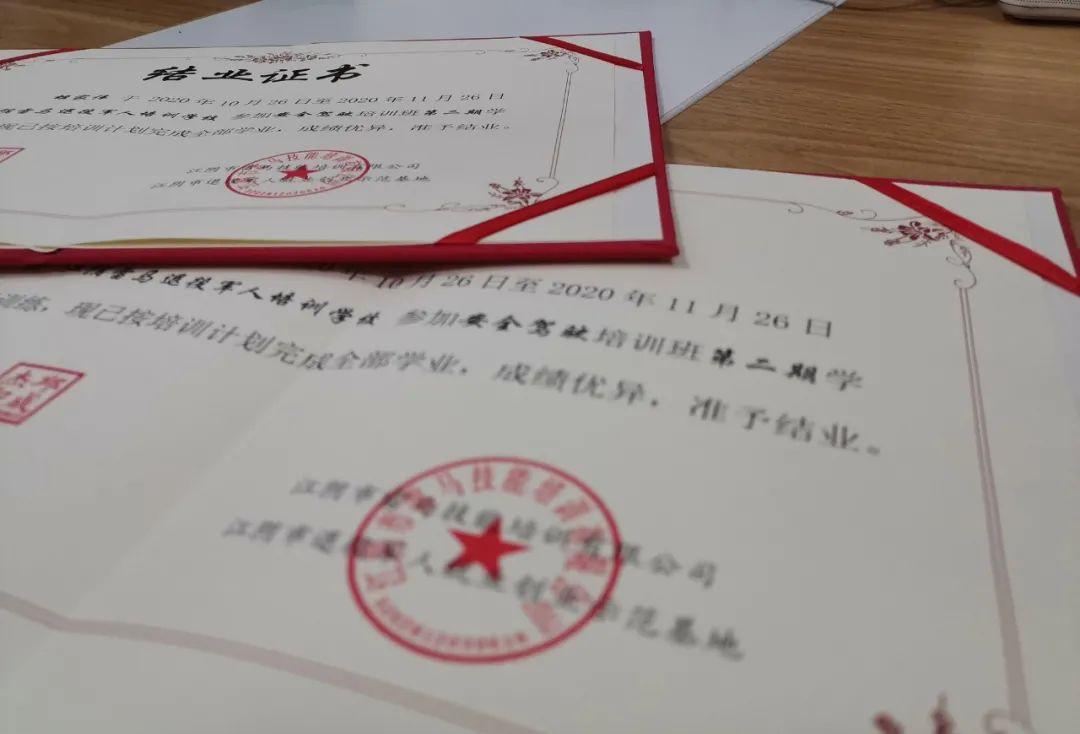 结业证书
于 2020 年 10 月 26 日至 2020 年 11 月 26 日
马退役军人培训学校 参加安全驾驶培训班第二期学
现已按培训计划完成全部学业，成绩优异，准予结业。
江阴市 马技能培训有限公司
江阴市退役军人就业创业示范基地
年 10 月 26 日至 2020 年 11 月 26 日
马退役军人培训学校 参加安全驾驶培训班第二期学
训练，现已按培训计划完成全部学业，成绩优异，准予结业。
江阴市 马技能培训有限公司
江阴市退役军人就业创业示范基地
马技能培训有限公司